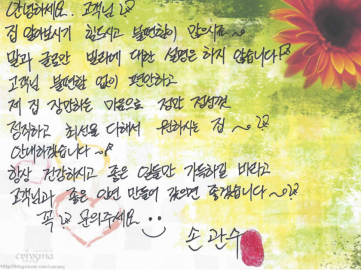 안녕하세요. 고객님 ?
집 알아보시기 힘드시고 불편함이 많으시죠~
말과 글로만 빌라에 대한 설명은 하지 않습니다!
고객님 불편함 없이 편안하고
제 집 장만하는 마음으로 정만 전념껏
정직하고 최선을 다해서 원하시는 집 ~
안내하겠습니다 ~
항상 건강하시고 좋은 일들만 가득하길 바라고
고객님과 좋은 인연 만들어 갔으면 좋겠습니다~
꼭 문의주세요
손관수